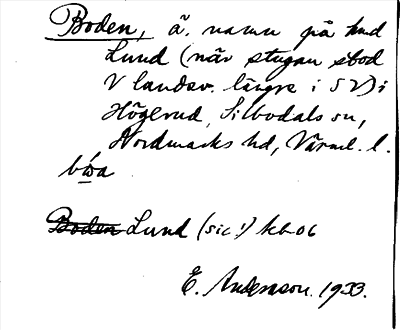 Boden, ä. namn på hmd
Lund (när stugan stod
V landsv. längre i SV) i
Högerud, Silbodals sn,
Nordmarks hd, Värml. l.
Boden Lund (sic!) kb 06
E. Anderson. 1933.